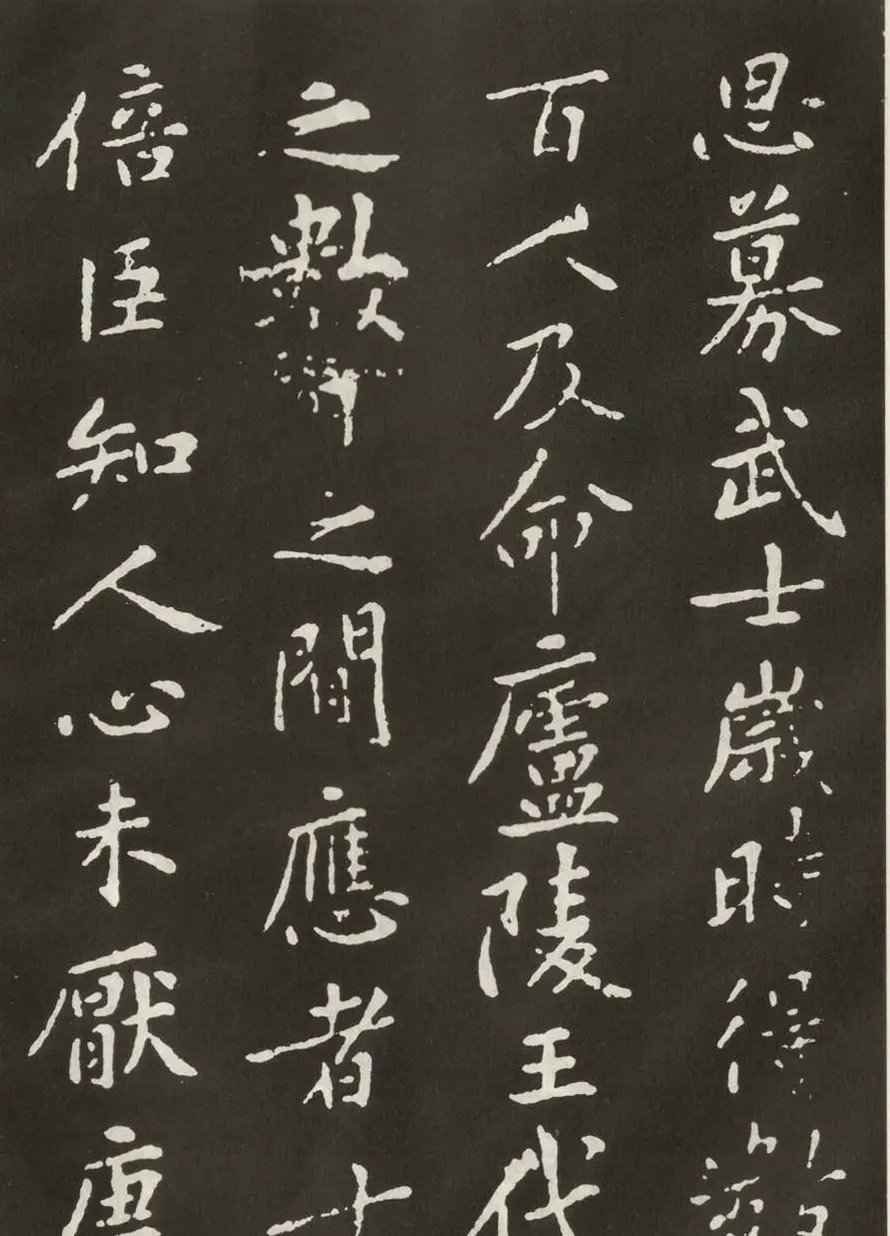 思募武士歲時得數
百人及命廬陵王代
之數之間應者十
倍臣知人心未厭唐